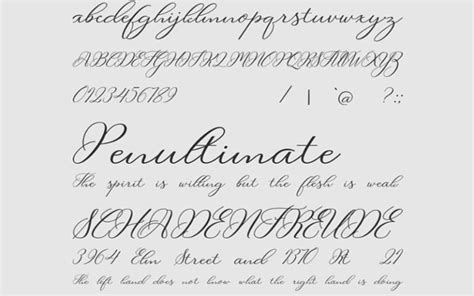 abcdefghijklmnopqrstuvwxyz
ABCDEFGHIJKLMNOPQRSTUVWXYZ
0123456789 / | `@ ?::
Penultimate
The spirit is willing but the flesh is weak
SCHADENFREUDE
3964 Elm Street and 1370 Rt 21
The left hand does not know what the right hand is doing